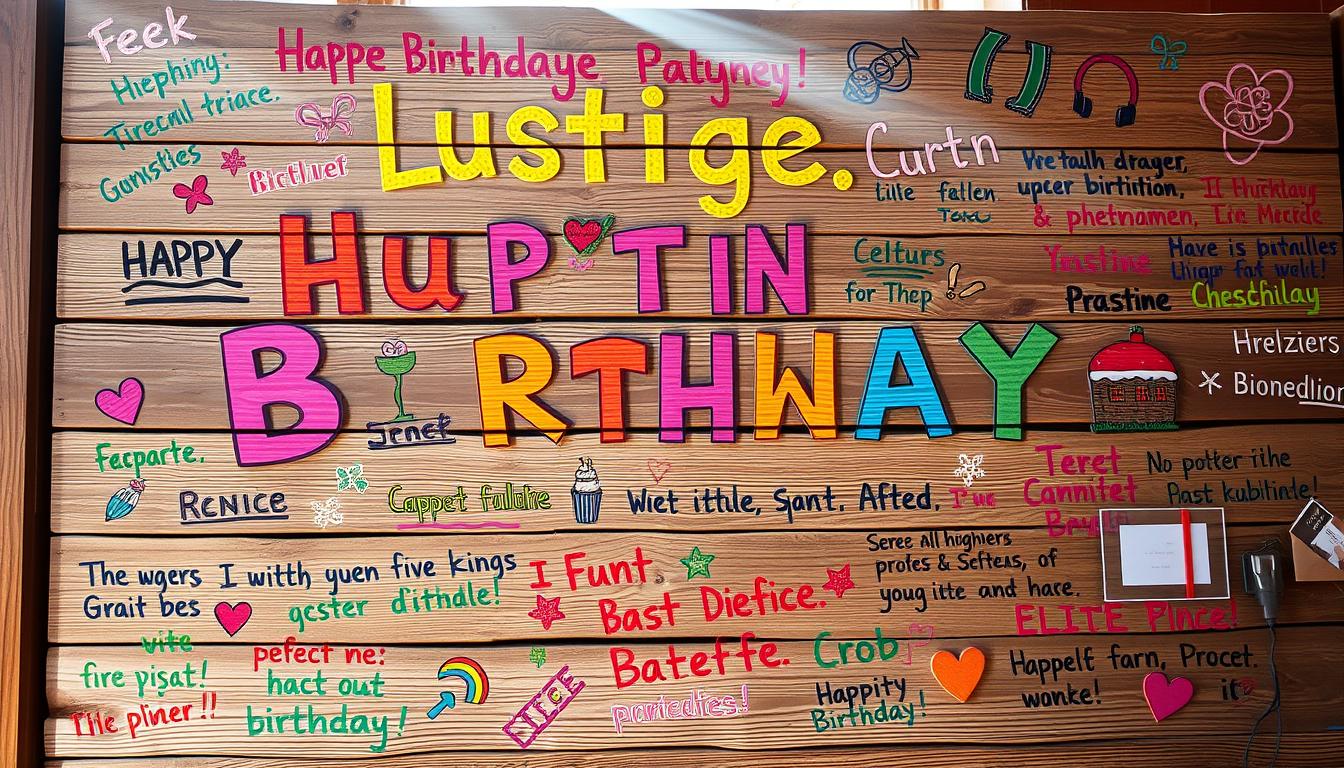 Feek
Hiephing:
Tirecnil triace.
Gumsties
Happe Birthdaye Palyney!
Lustige.
Curtn
lille fallen
Vve talh drager,
upcer birtirtion,
& phetnamen, Tin Mercde
HAPPY
HUPTIN
Celturs
for Thep
Have is prtnalles
Prastine Chescthilay
B RTHWAY
Hrelziers
* Bionedlion
Fecparte.
RENICE
Cappet fulihe
Wiet ittle, Sant. Afted.
Teret
Cannitet
No potter iihe
Past kubitinte!
The wgers I witth yuen five kings
Grait bes gester dithdle!
I Funt.
Bast Diefice.
Seree All highiers
profes & Sefteas, of
youg itte and hare.
ELITE Plnce!
vite
fire pisat!
Tile pliner!!
pefect ne:
hact out
birthday!
Bateffe.
Crob
Happity
Birthday!
Happelf farn, Procet.
wonke! it